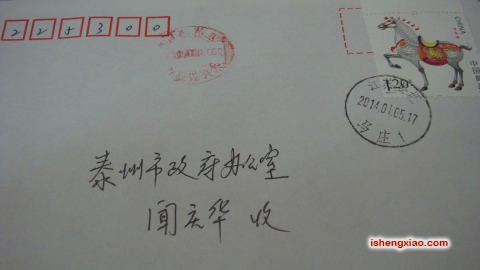 225300
CHINA
中国
1.20
江苏
2014.01.05.17
马庄1
泰州市政府办公室
闻庆华 收
ishengxiao.com